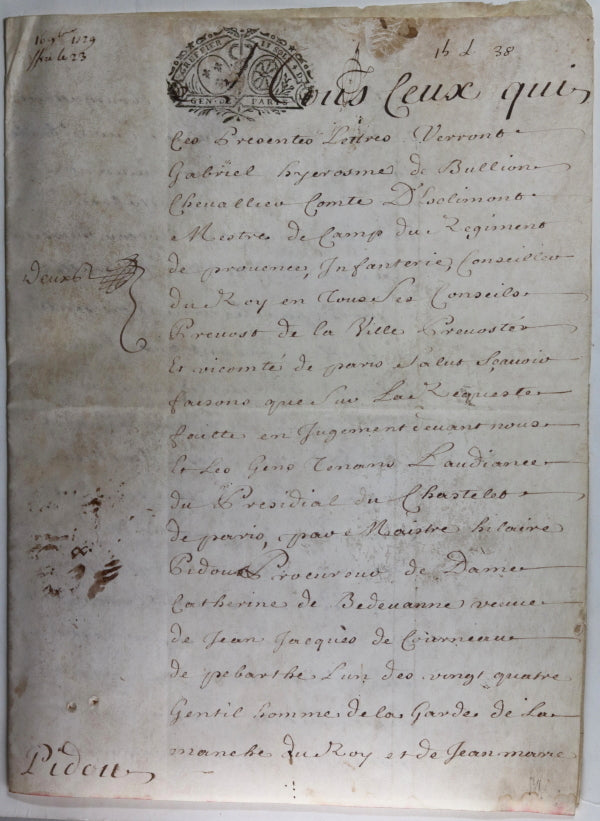 16 9bre 1729
15 d 38
GEN. DE PARIS
A Tous Ceux qui
Ces Presentes Lettres Verront
Gabriel hyerosme de Bullion
Chevallier Comte D'Esclimont
Mestre de Camp du Regiment
de provence, Infanterie, Conseiller
du Roy en Tous Ses Conseils
Prevost de la Ville Prevosté
Et vicomté de paris Salut Sçavoir
faisons que Sur La Requeste
faitte en Jugement devant nous
Et Les Gens Tenans Laudiance
du Presidial du Chastelet
de paris, par Maistre hilaire
Pidou Procureur de Dame
Catherine de Bedeuanne veuve
de Jean Jacques de Courneau
de pebarthe Lun des vingt quatre
Gentil homme de la Garde de La
manche du Roy et de Jean marie
deux
Pidou